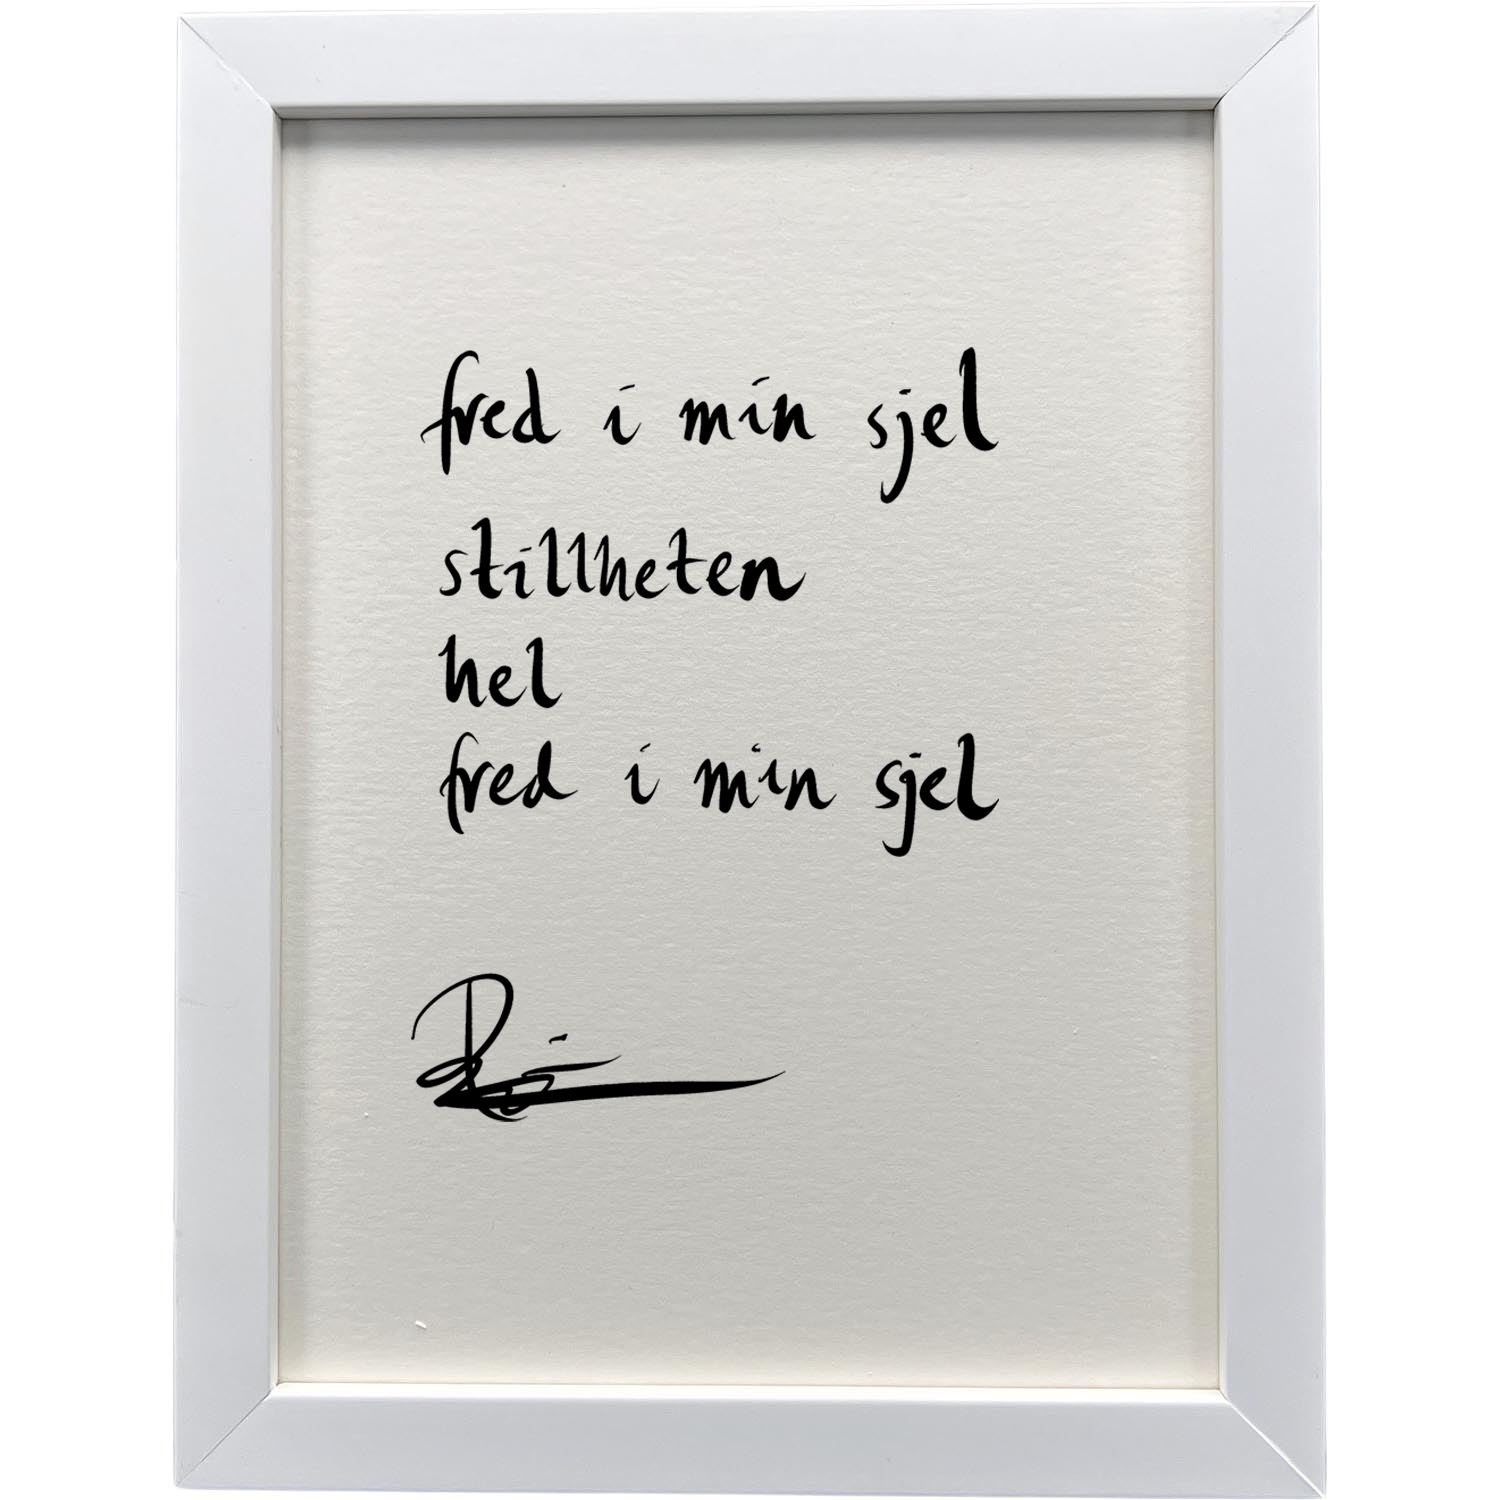 fred i min sjel
stillheten
hel
fred i min sjel